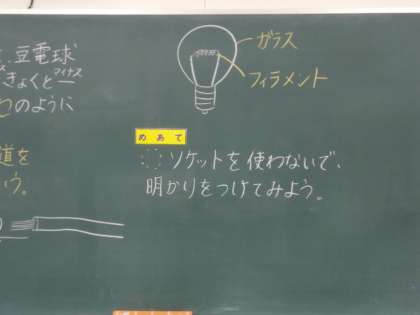 豆電球
きょくと一
マイナス
のように
道を
う。
ガラス
フィラメント
めあて
ソケットを使わないで、
明かりをつけてみよう。